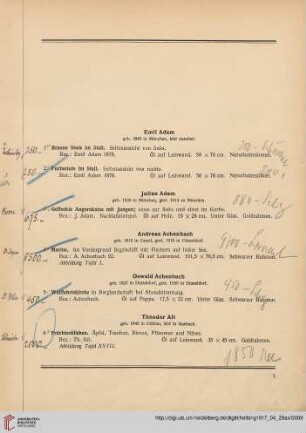 Emil Adam
geb. 1843 in München, lebt daselbst.
1 Braune Stute im Stall. Seitenansicht von links.
Bez.: Emil Adam 1879. Öl auf Leinwand. 56 × 76 cm. Naturholzrahmen.
250.-
2 Fuchsstute im Stall. Seitenansicht von rechts.
Bez.: Emil Adam 1878. Öl auf Leinwand. 56 × 76 cm. Naturholzrahmen.
250.-
Julius Adam
geb. 1826 in München, gest. 1874 zu München.
Gefleckte Angorakatze mit Jungen; eines zur Seite und eines im Korbe.
Bez.: J. Adam. Nachlaßstempel. Öl auf Holz. 19 × 28 cm. Unter Glas. Goldrahmen.
Andreas Achenbach
geb. 1815 in Cassel, gest. 1910 in Düsseldorf.
4 Marine. Im Vordergrund Segelschiff mit Fischern auf hoher See.
Bez.: A. Achenbach 92. Öl auf Leinwand. 101,5 × 76,5 cm. Schwarzer Rahmen.
Abbildung Tafel I.
Oswald Achenbach
geb. 1827 in Düsseldorf, gest. 1905 in Düsseldorf.
5 Wallfahrtskirche in Berglandschaft bei Abendstimmung.
Bez.: Achenbach. Öl auf Pappe. 17,5 × 22 cm. Unter Glas. Schwarzer Rahmen.
Theodor Alt
geb. 1846 in Döhlau, lebt in Ansbach.
6 Früchtestilleben. Äpfel, Trauben, Birnen, Pflaumen und Nüsse.
Bez.: Th. Alt. Öl auf Leinwand. 35 × 45 cm. Goldrahmen.
Abbildung Tafel XVIII.
1
http://digi.ub.uni-heidelberg.de/diglit/helbing1917_04_28a/0009